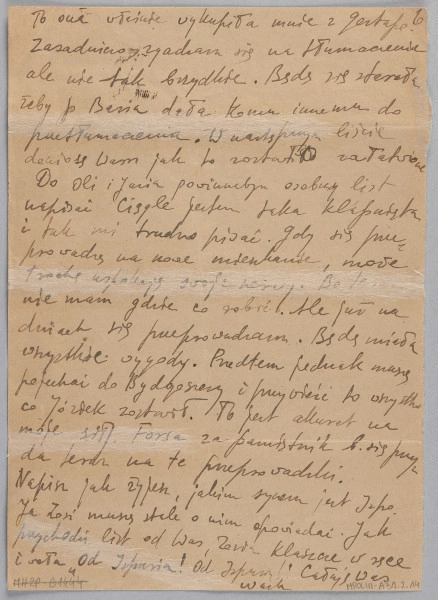 To ona właśnie wykupiła mnie z gestapo. 6
Zasadniczo zgadzam się na tłumaczenie
ale nie tak brzydkie. Będę się starała
żeby p. Basia dała komu innemu do
przetłumaczenia. W następnym liście
doniosę Wam jak to zostało załatwione
Do Oli i Jasia powinnabym osobny list
napisać. Ciągle jestem taka
i tak mi trudno pisać. Gdy się prze-
prowadzę na nowe mieszkanie, może
trochę uspokoję swoje nerwy. Bo teraz
nie mam gdzie co robić. Ale już na
dniach się przeprowadzam. Będę miała
wszystkie wygody. Przedtem jednak muszę
pojechać do Bydgoszczy i przywieźć to wszystko
co Józiek zostawił. To jest akurat na
moje siły. Forsa za pamiętnik b. się przy-
da teraz na te przeprowadzki.
Napisz jak żyjesz, jakim synem jest
Ja Zosi muszę stale o nim opowiadać. Jak
przychodzi list od Was, Zosia klaszcze w ręce
i woła "Od ! Od ! Całuję Was
MPOLIN-A31.2.14